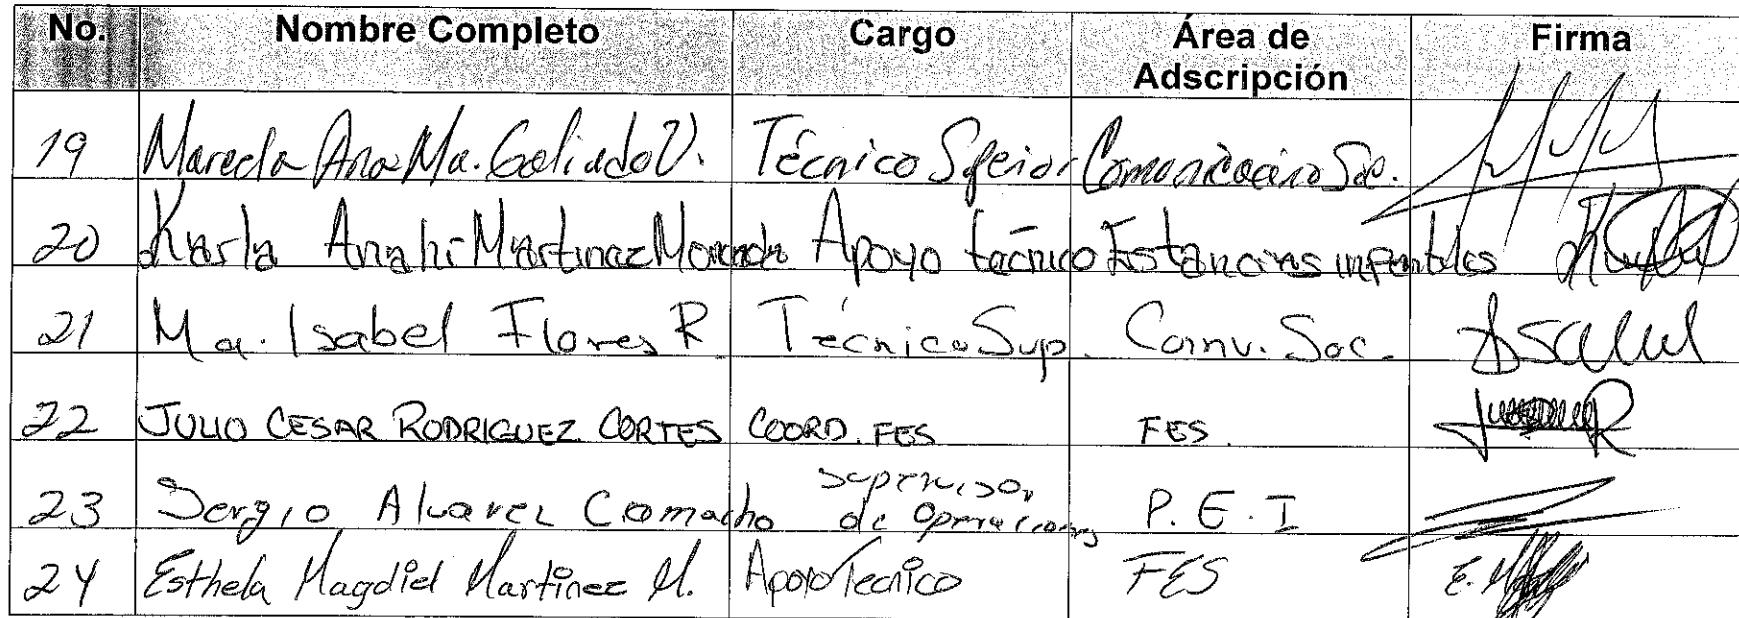 No. Nombre Completo Cargo Área de Adscripción Firma
19 Ana Ma. V. Técnico Comunicación Soc.
20 Karla Anahi Martinez Apoyo técnico Estancias infantiles
21 Ma. Isabel Flores R. Técnico Sup. Comu. Soc.
22 JULIO CESAR RODRIGUEZ CORTES COORD. FES FES.
23 Sergio Alvarez Camacho supervisor de Operaciones P.E.I
24 Esthela Magdiel Martinez M. Apoyo Tecnico FES E.